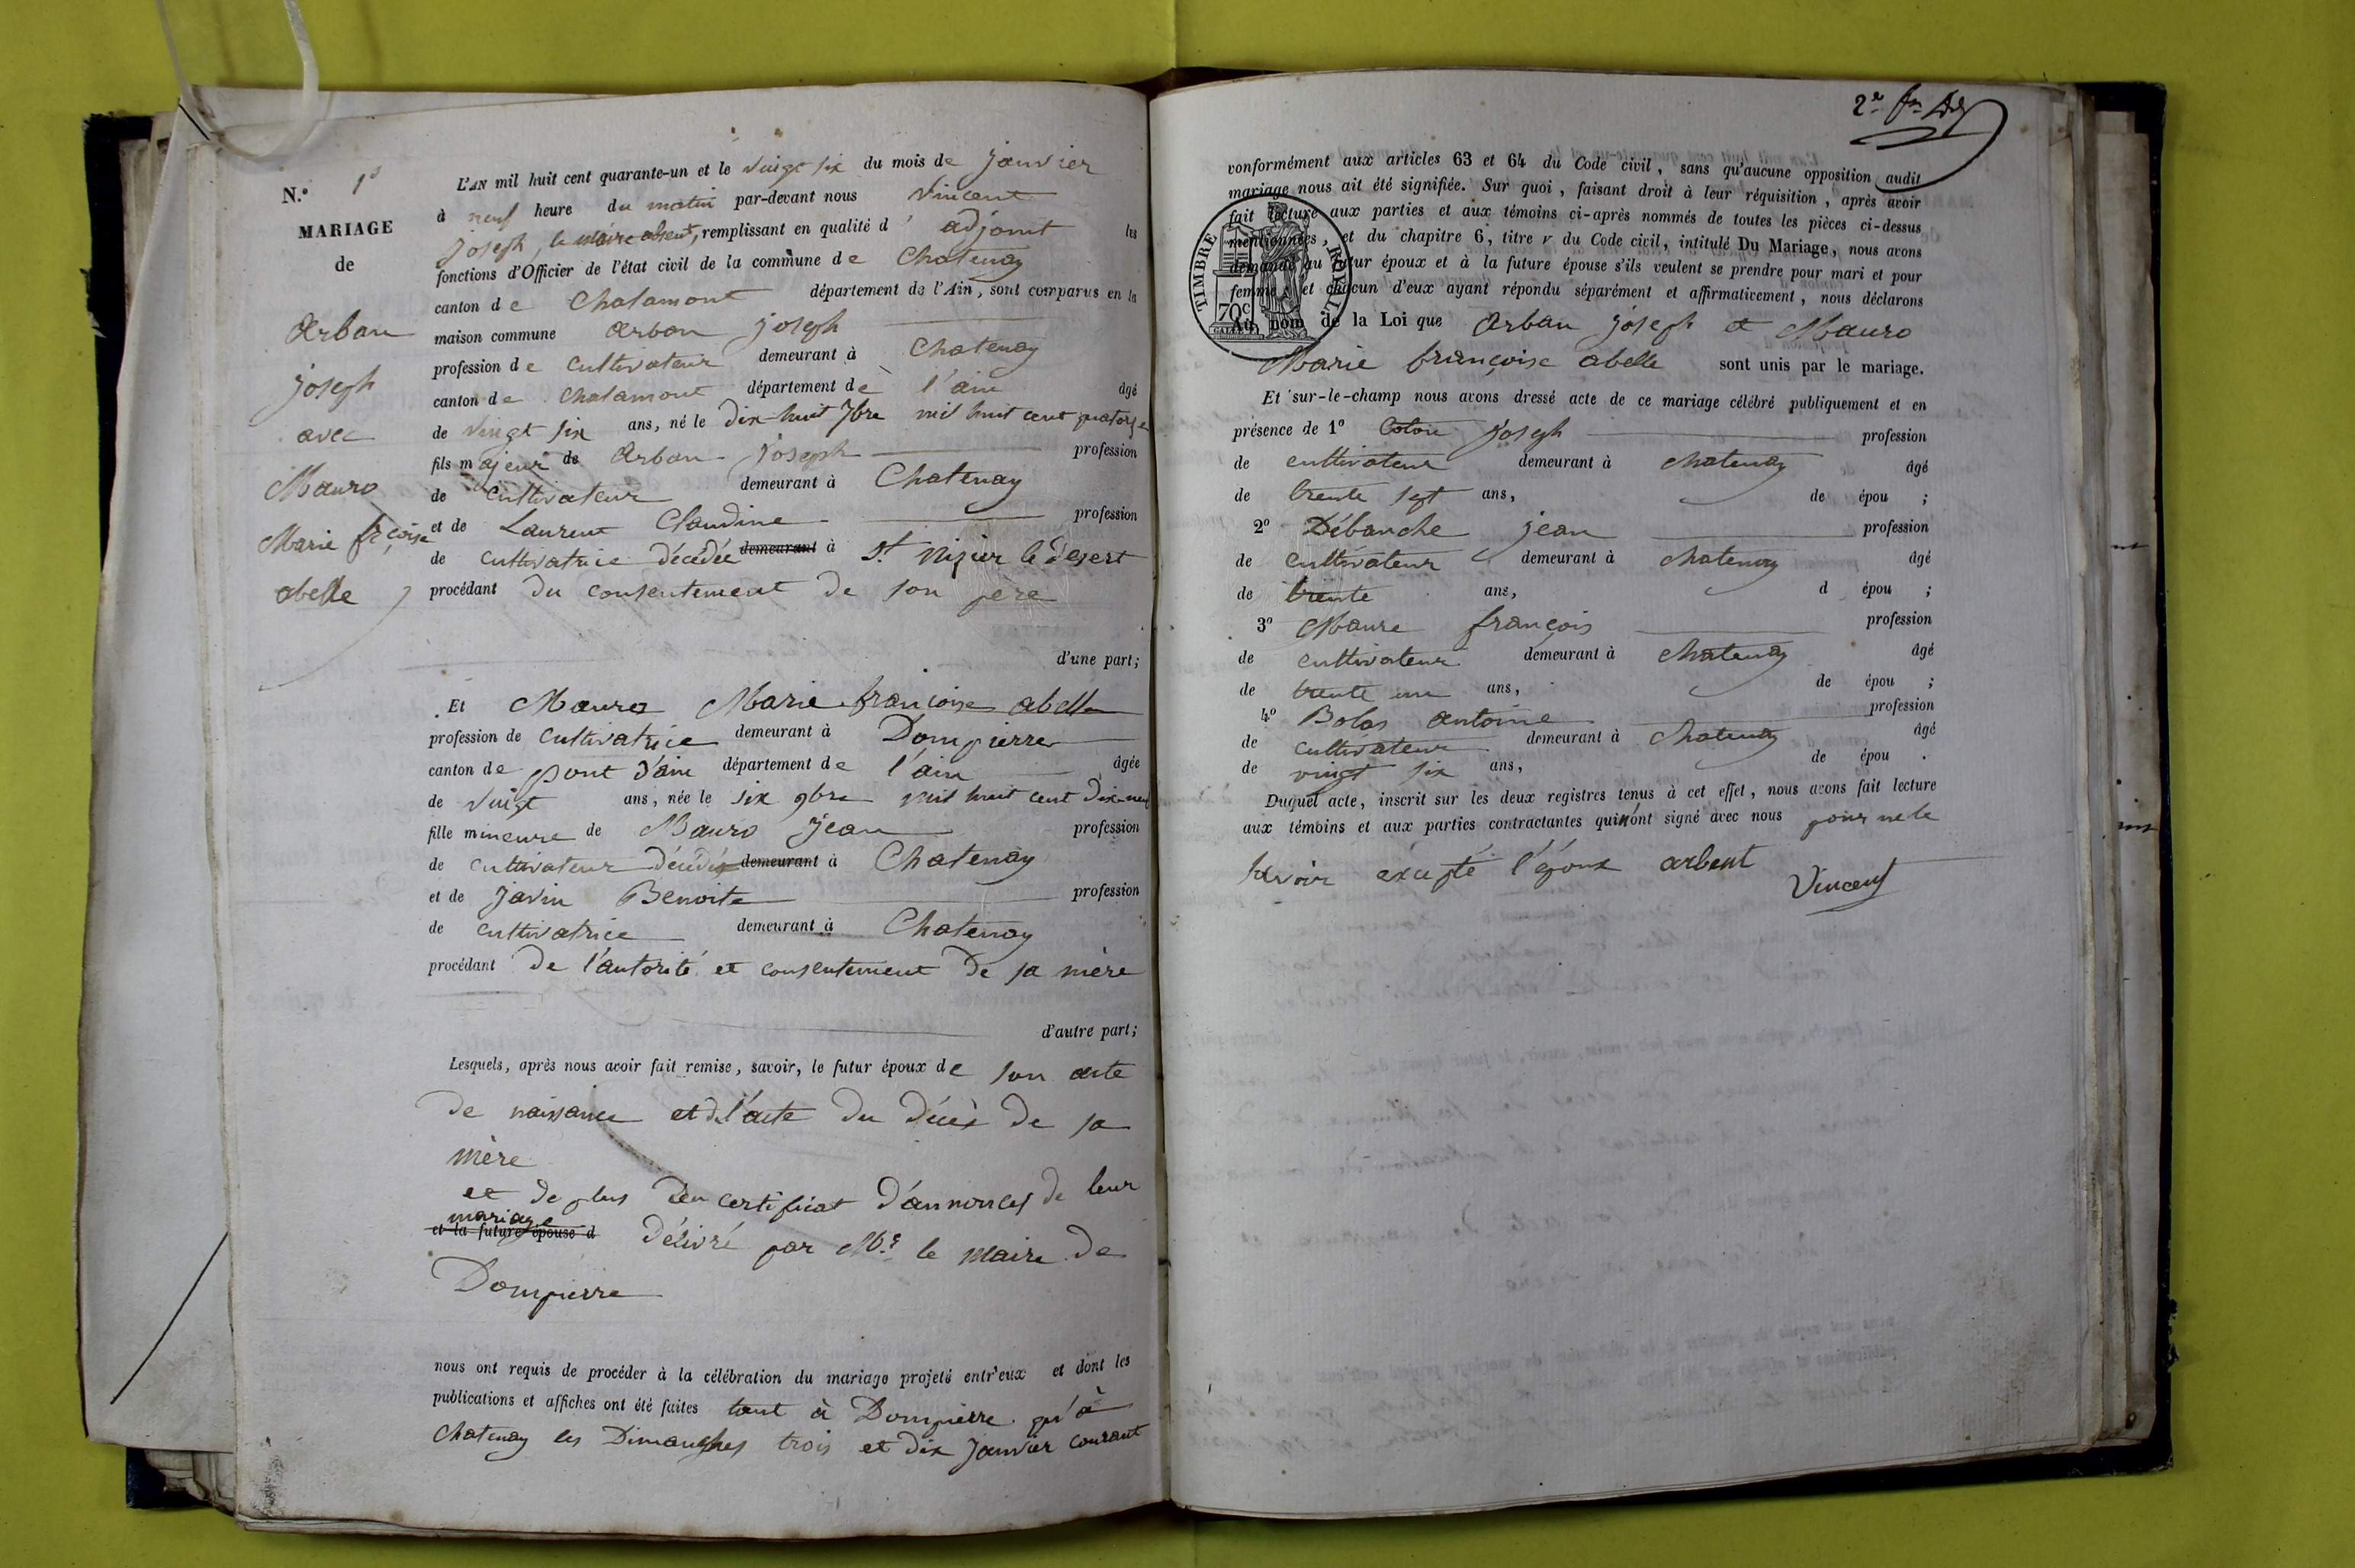 N.o 1
MARIAGE
de
Arban
joseph
avec
Mauro
Marie fçoise
abelle
L'AN mil huit cent quarante-un et le vingt six du mois de janvier
à neuf heure du matin par-devant nous Vincent
joseph, le maire absent, remplissant en qualité d' adjoint les
fonctions d'Officier de l'état civil de la commune de Chatenay
canton de Chalamont département de l'Ain, sont comparus en la
maison commune Arban joseph
profession de cultivateur demeurant à Chatenay
canton de Chalamont département de l'ain âgé
de vingt six ans, né le dix-huit 7bre mil huit cent quatorze
fils majeur de Arban joseph profession
de cultivateur demeurant à Chatenay
et de Laurent Claudine profession
de cultivatrice décédée demeurant à St Nizier le désert
procédant du consentement de son père
d'une part;
Et Mauro Marie françoise abelle
profession de cultivatrice demeurant à Dompierre
canton de pont d'ain département de l'ain âgée
de vingt ans, née le six 9bre mil huit cent dix-neuf
fille mineure de Mauro Jean profession
de cultivateur décédé demeurant à Chatenay
et de Javin Benoite profession
de cultivatrice demeurant à Chatenay
procédant de l'autorité et consentement de sa mère
d'autre part;
Lesquels, après nous avoir fait remise, savoir, le futur époux de son acte
de naissance et de l'acte du décès de sa
mère
et de plus d'un certificat d'annonces de leur
mariage
et la future épouse d délivré par Mr le maire de
Dompierre
nous ont requis de procéder à la célébration du mariage projeté entr'eux et dont les
publications et affiches ont été faites tant à Dompierre qu'à
Chatenay les Dimanches trois et dix janvier courant
2e
conformément aux articles 63 et 64 du Code civil, sans qu'aucune opposition audit
mariage nous ait été signifiée. Sur quoi, faisant droit à leur réquisition, après avoir
fait lecture aux parties et aux témoins ci-après nommés de toutes les pièces ci-dessus
mentionnées, et du chapitre 6, titre v du Code civil, intitulé Du Mariage, nous avons
demandé au futur époux et à la future épouse s'ils veulent se prendre pour mari et pour
femme, et chacun d'eux ayant répondu séparément et affirmativement, nous déclarons
TIMBRE ROYAL
70c
Au nom de la Loi que Arban joseph et Mauro
Marie françoise abelle sont unis par le mariage.
Et sur-le-champ nous avons dressé acte de ce mariage célébré publiquement et en
présence de 1o Coton joseph profession
de cultivateur demeurant à chatenay âgé
de trente sept ans, de épou ;
2o Débauche jean profession
de cultivateur demeurant à chatenay âgé
de trente ans, d épou ;
3o Maure françois profession
de cultivateur demeurant à chatenay âgé
de trente un ans, de épou ;
4o Bolas antoine profession
de cultivateur demeurant à chatenay âgé
de vingt six ans, de épou .
Duquel acte, inscrit sur les deux registres tenus à cet effet, nous avons fait lecture
aux témoins et aux parties contractantes qui n'ont signé avec nous pour ne le
savoir excepté l'époux arbent Vincent